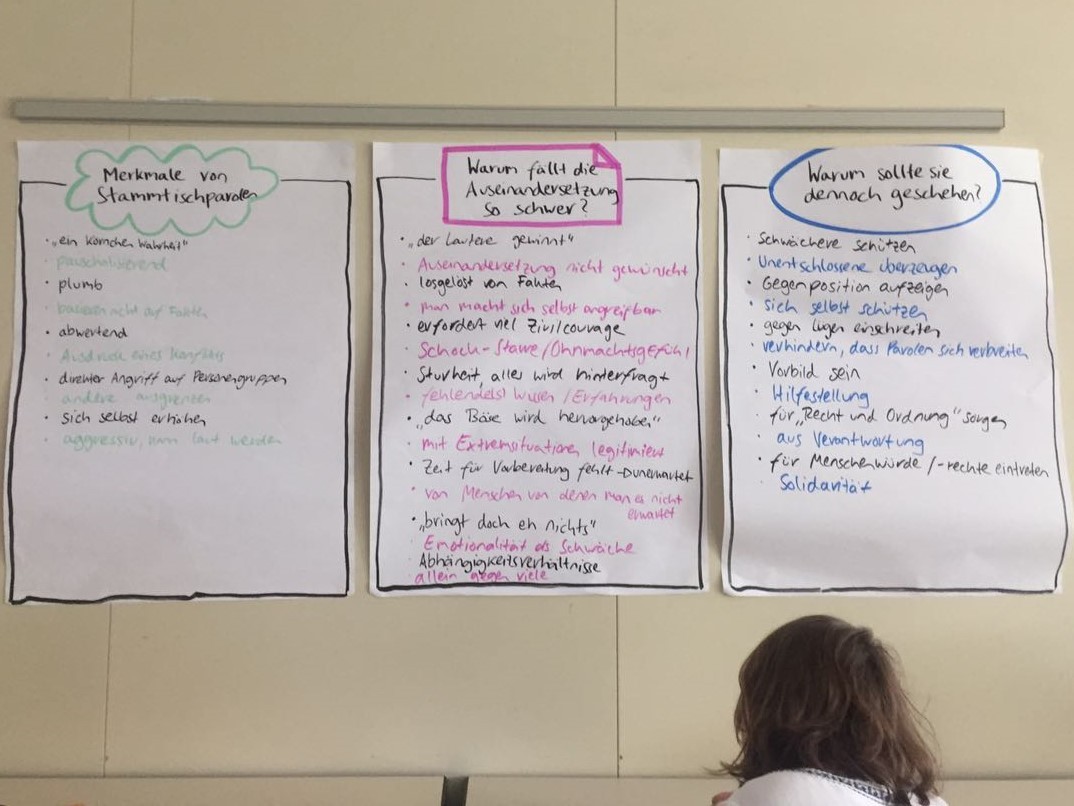 Merkmale von
Stammtischparolen
• „ein Körnchen Wahrheit“
• pauschalisierend
• plumb
• basieren nicht auf Fakten
• abwertend
• Ausdruck eines Konflikts
• direkter Angriff auf Personengruppen
• andere ausgrenzen
• sich selbst erhöhen
• aggressiv, kann laut werden
Warum fällt die
Auseinandersetzung
so schwer?
• „der Lautere gewinnt“
• Auseinandersetzung nicht gewünscht
• losgelöst von Fakten
• man macht sich selbst angreifbar
• erfordert viel Zivilcourage
• Schock-Starre/Ohnmachtsgefühl
• Sturheit, alles wird hinterfragt
• fehlende(s) Wissen/Erfahrungen
• „das Böse wird hervorgehoben“
• mit Extremsituationen legitimiert
• Zeit für Vorbereitung fehlt - unerwartet
• von Menschen von denen man es nicht
erwartet
• „bringt doch eh nichts“
• Emotionalität als Schwäche
• Abhängigkeitsverhältnisse
• allein gegen viele
Warum sollte sie
dennoch geschehen?
• Schwächere schützen
• Unentschlossene überzeugen
• Gegenposition aufzeigen
• sich selbst schützen
• gegen Lügen einschreiten
• verhindern, dass Parolen sich verbreiten
• Vorbild sein
• Hilfestellung
• für „Recht und Ordnung“ sorgen
• aus Verantwortung
• für Menschenwürde/-rechte eintreten
• Solidarität